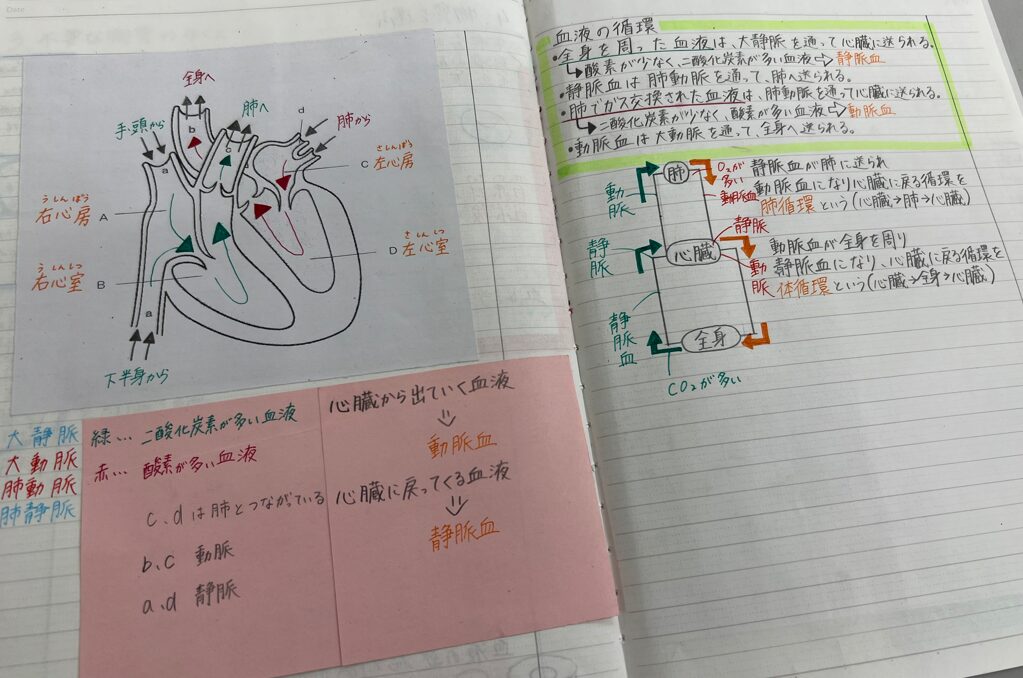 Date
全身へ
肺へ
手、頭から
肺から
a
b
c
d
うしんぼう
右心房
A
さしんぼう
左心房
C
うしんしつ
右心室
B
さしんしつ
左心室
D
a
下半身から
大静脈
大動脈
肺動脈
肺静脈
緑… 二酸化炭素が多い血液
赤… 酸素が多い血液
c、dは肺とつながっている
b、c 動脈
a、d 静脈
心臓から出ていく血液
動脈血
心臓に戻ってくる血液
静脈血
血液の循環
・全身を周った血液は、大静脈を通って心臓に送られる。
酸素が少なく、二酸化炭素が多い血液⇨静脈血
・静脈血は肺動脈を通って、肺へ送られる。
・肺でガス交換された血液は、肺動脈を通って心臓に送られる。
二酸化炭素が少なく、酸素が多い血液⇨動脈血
・動脈血は大動脈を通って、全身へ送られる。
肺
動脈
O₂が多い
動脈血
静脈血が肺に送られ
動脈血になり心臓に戻る循環を
肺循環という(心臓→肺→心臓)
静脈
静脈
心臓
動脈
動脈血が全身を周り
静脈血になり、心臓に戻る循環を
体循環という(心臓→全身→心臓)
静脈血
全身
CO₂が多い